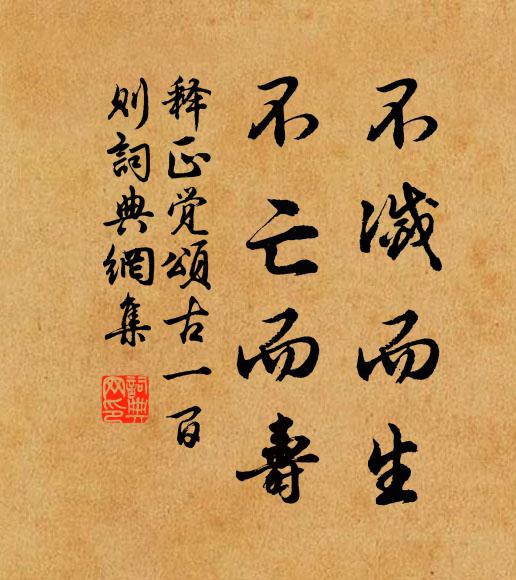 不滅而生
不亡而壽
释正覺頌古一百
则詞典網集
詞典
网印